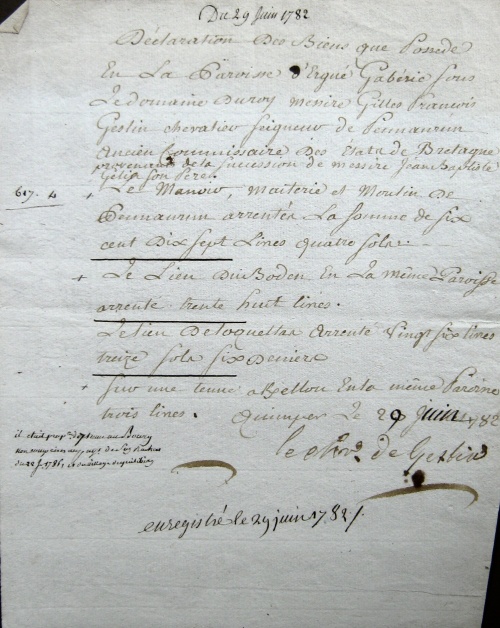 Du 29 Juin 1782
Déclaration Des Biens que Possede
En La Paroisse d'Ergué Gabéric sous
Le domaine Du roy messire Gilles francois
Gestin chevalier seigneur de Pennanrun
Ancien Commissaire Des Etats de Bretagne
provenants de la succession de messire Jean Baptiste
Gestin Son Pere.
617 - 4
+ Le Manoir, maiterie et Moulin De
Pennanrun arrentés La somme de six
cent Dix sept Livres quatre sols.
+ Le Lieu Du Boden En La même Paroisse
arrenté trente huit livres.
Le lieu De toquellar arrenté Vingt six livres
treize sols six Deniers
+ Sur une tenue a En la même Paroisse
trois livres. Quimper Le 29 Juin 1782
le chr. de Gestin
il était
du 22 1786,
enregistré le 29 juin 1782 /.